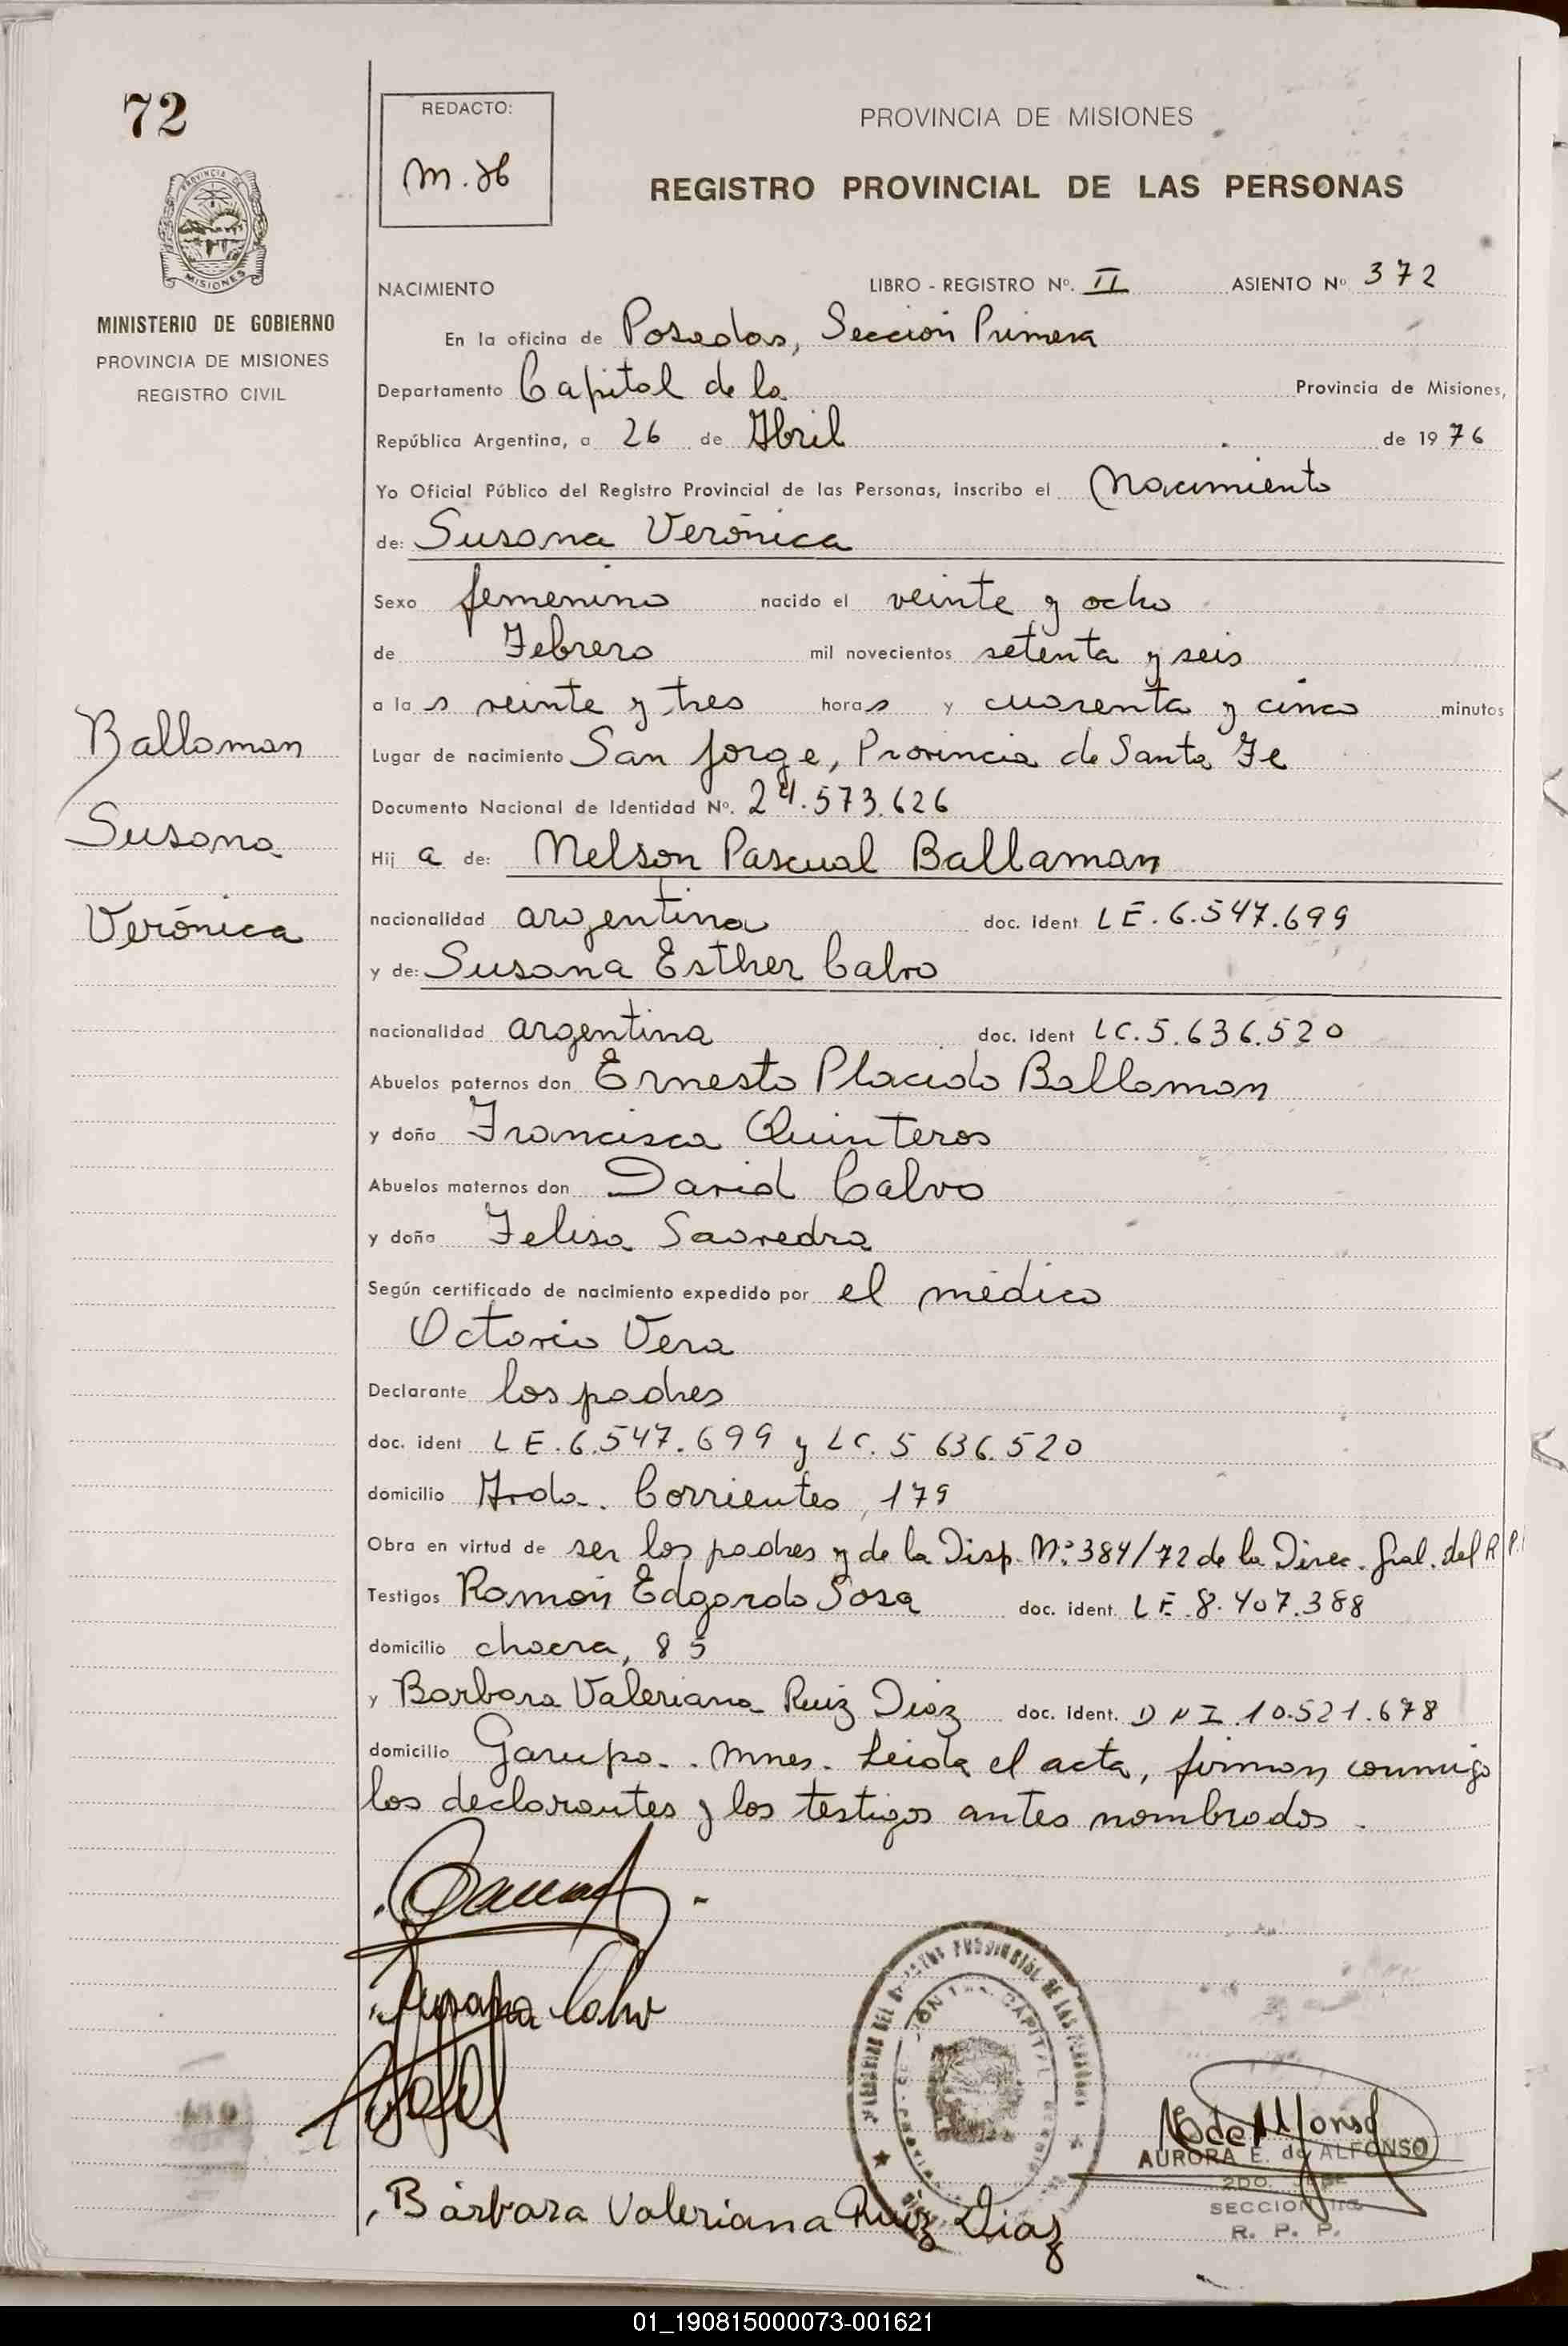 72
REDACTO:
PROVINCIA DE MISIONES
REGISTRO PROVINCIAL DE LAS PERSONAS
PROVINCIA DE
MISIONES
MINISTERIO DE GOBIERNO
PROVINCIA DE MISIONES
REGISTRO CIVIL
NACIMIENTO LIBRO - REGISTRO Nº. II ASIENTO Nº 372
En la oficina de Posadas, Sección Primera
Departamento Capital de la Provincia de Misiones,
República Argentina, a 26 de Abril de 1976
Yo Oficial Público del Registro Provincial de las Personas, inscribo el Nacimiento
de: Susana Verónica
Sexo femenino nacido el veinte y ocho
de Febrero mil novecientos setenta y seis
a las veinte y tres horas y cuarenta y cinco minutos
Lugar de nacimiento San Jorge, Provincia de Santa Fe
Documento Nacional de Identidad Nº. 24.573.626
Hija de: Nelson Pascual Ballaman
nacionalidad argentina doc. ident LE. 6.547.699
y de: Susana Esther Calvo
nacionalidad argentina doc. ident LC. 5.636.520
Abuelos paternos don Ernesto Placido Ballaman
y doña Francisca Quinteros
Abuelos maternos don David Calvo
y doña Felisa Saavedra
Según certificado de nacimiento expedido por el médico
Octavio Vera
Declarante los padres
doc. ident LE. 6.547.699 y LC. 5 636.520
domicilio Avda. Corrientes, 179
Obra en virtud de ser los padres y de la Disp. Nº 384/72 de la Direc. Gral. del R.P.
Testigos Ramón Edgardo Sosa doc. ident LE. 8.407.388
domicilio chacra, 85
y Barbara Valeriana Ruiz Diaz doc. ident. DNI. 10.521.678
domicilio Garupa. Mnes. Leida el acta, firman conmigo
los declarantes y los testigos antes nombrados.
Ballaman
Susana
Verónica
Susana Calvo
Bárbara Valeriana Ruiz Diaz
AURORA E. de ALFONSO
2DO. JEFE
SECCION 1ra
R. P. P.
01_190815000073-001621